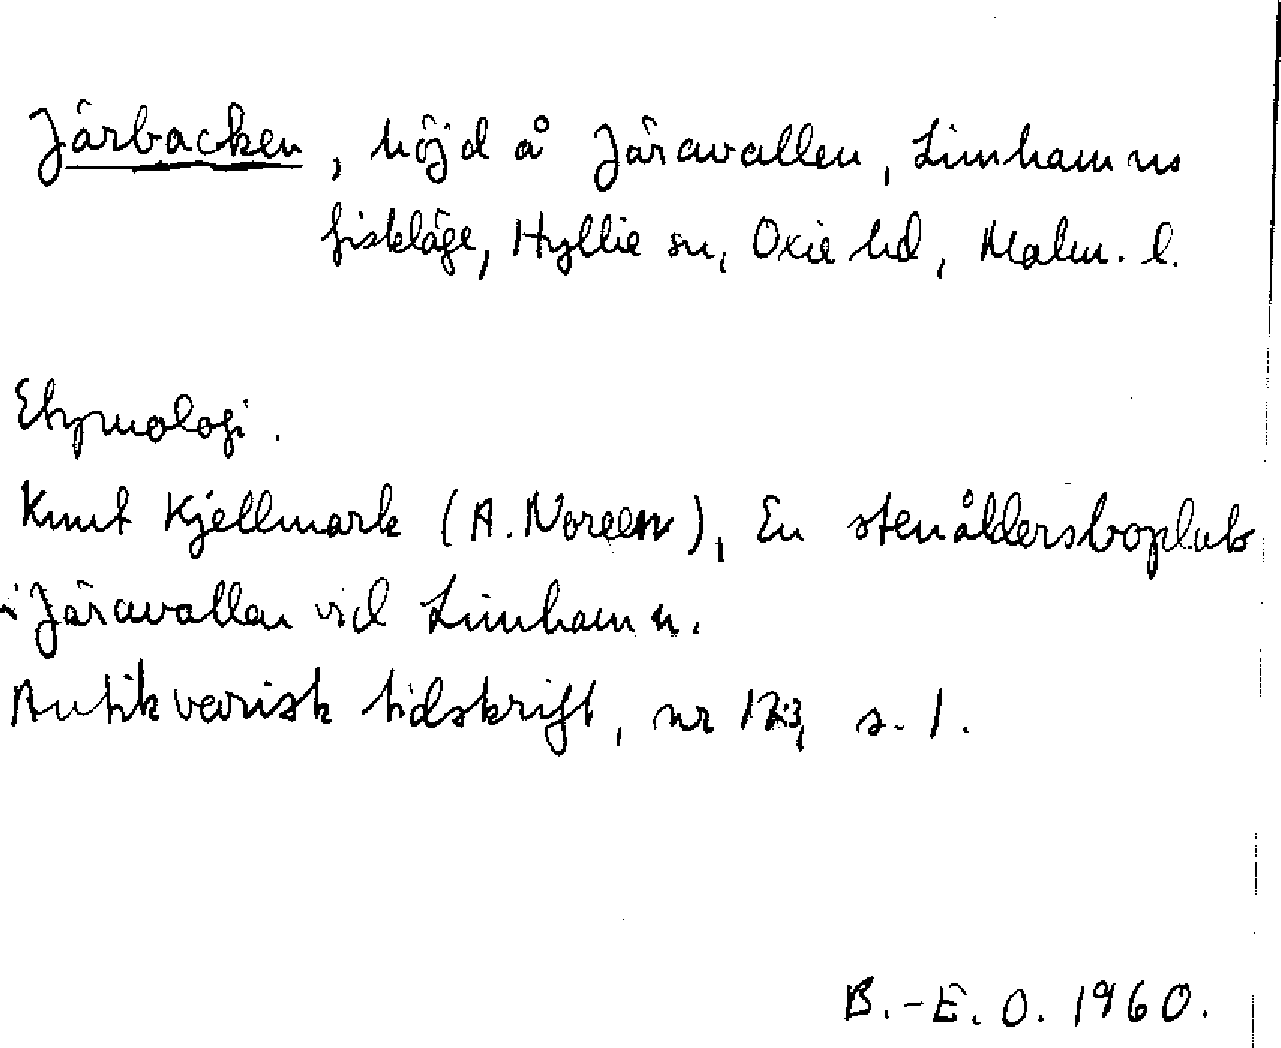 Järbacken, höjd å Järavallen, Limhamns
fiskläge, Hyllie sn, Oxie hd, Malm. l.
Etymologi.
Knut Kjellmark (A. Noreen), En stenåldersboplats
i Järavallen vid Limhamn.
Antikvarisk tidskrift, nr 17:3, s. 1.
B.-E. O. 1960.